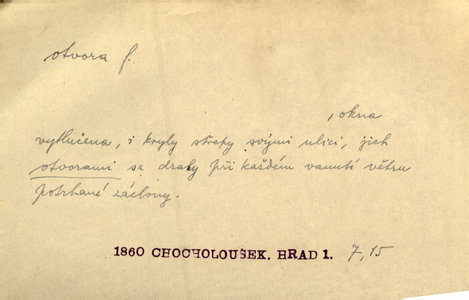 otvora f.
, okna
vytlučena, i kryly střepy svými ulici, jich
otvorami se draly při každém vanutí větru
potrhané záclony.
1860 CHOCHOLOUŠEK, HRAD 1. 7,15